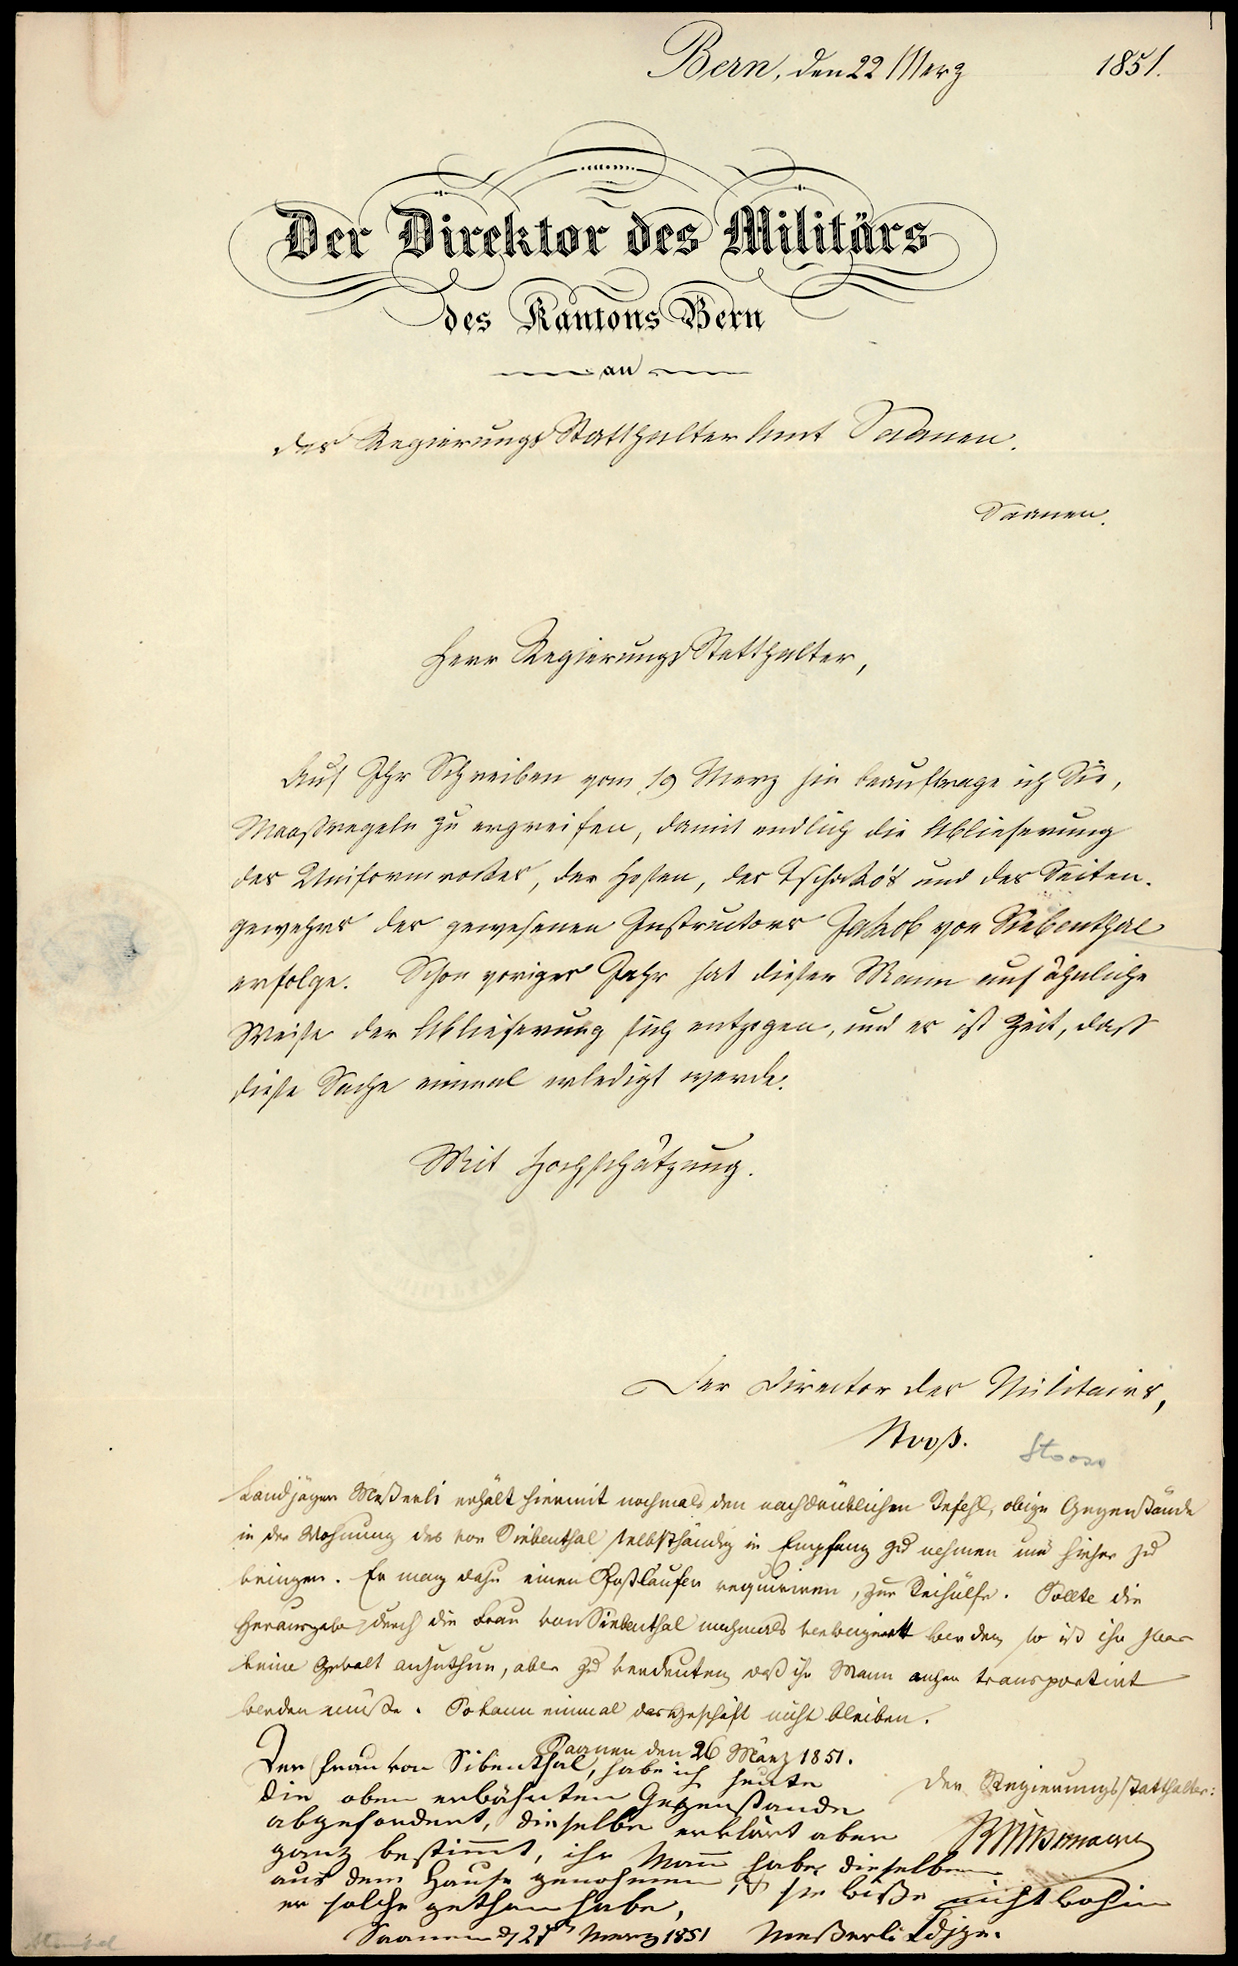 Bern, den 22 Merz 1851.
Der Direktor des Militärs
des Kantons Bern
an
das Regierungs Statthalter Amt Saanen.
Saanen.
Herr Regierungs Statthalter,
Auf Ihr Schreiben vom 19 Merz hin beauftrage ich Sie,
Maaßregeln zu ergreifen, damit endlich die Ablieferung
des Uniformrockes, der Hosen, des Tschako's und des Seiten-
gewehrs des gewesenen Instructors Jakob von Siebenthal
erfolge. Schon voriges Jahr hat dieser Mann auf ähnliche
Weise der Ablieferung sich entzogen, und es ist Zeit, daß
diese Sache einmal erledigt werde.
Mit Hochschätzung.
Der Director des Militairs,
Stooß. Stooss
Landjäger Meßerli erhält hiermit nochmals den nachdrücklichen Befehl, obige Gegenstände
in der Wohnung des von Siebenthal selbsthändig in Empfang zu nehmen und hieher zu
bringen. Er mag dafür einen Postläufer requiriren, zur Beihülfe. Sollte die
Herausgabe durch die Frau von Siebenthal nochmals verweigert werden, so ist ihr zwar
keine Gewalt anzuthun, aber zu bedeuten, daß ihr Mann anher transportirt
werden müßte. So kann einmal das Geschäft nicht bleiben.
Saanen den 26 März 1851.
Der Regierungsstatthalter:
Der Frau von Sibenthal, habe ich heute
die oben erwähnten Gegenstände
abgefordert, dieselbe erklärt aber
ganz bestimmt, ihr Mann habe dieselben
aus dem Hause genohmen, & sie wiße nicht wohin
er solche gethan habe,
Saanen d 27t Merz 1851 Meßerli Ldjgr.